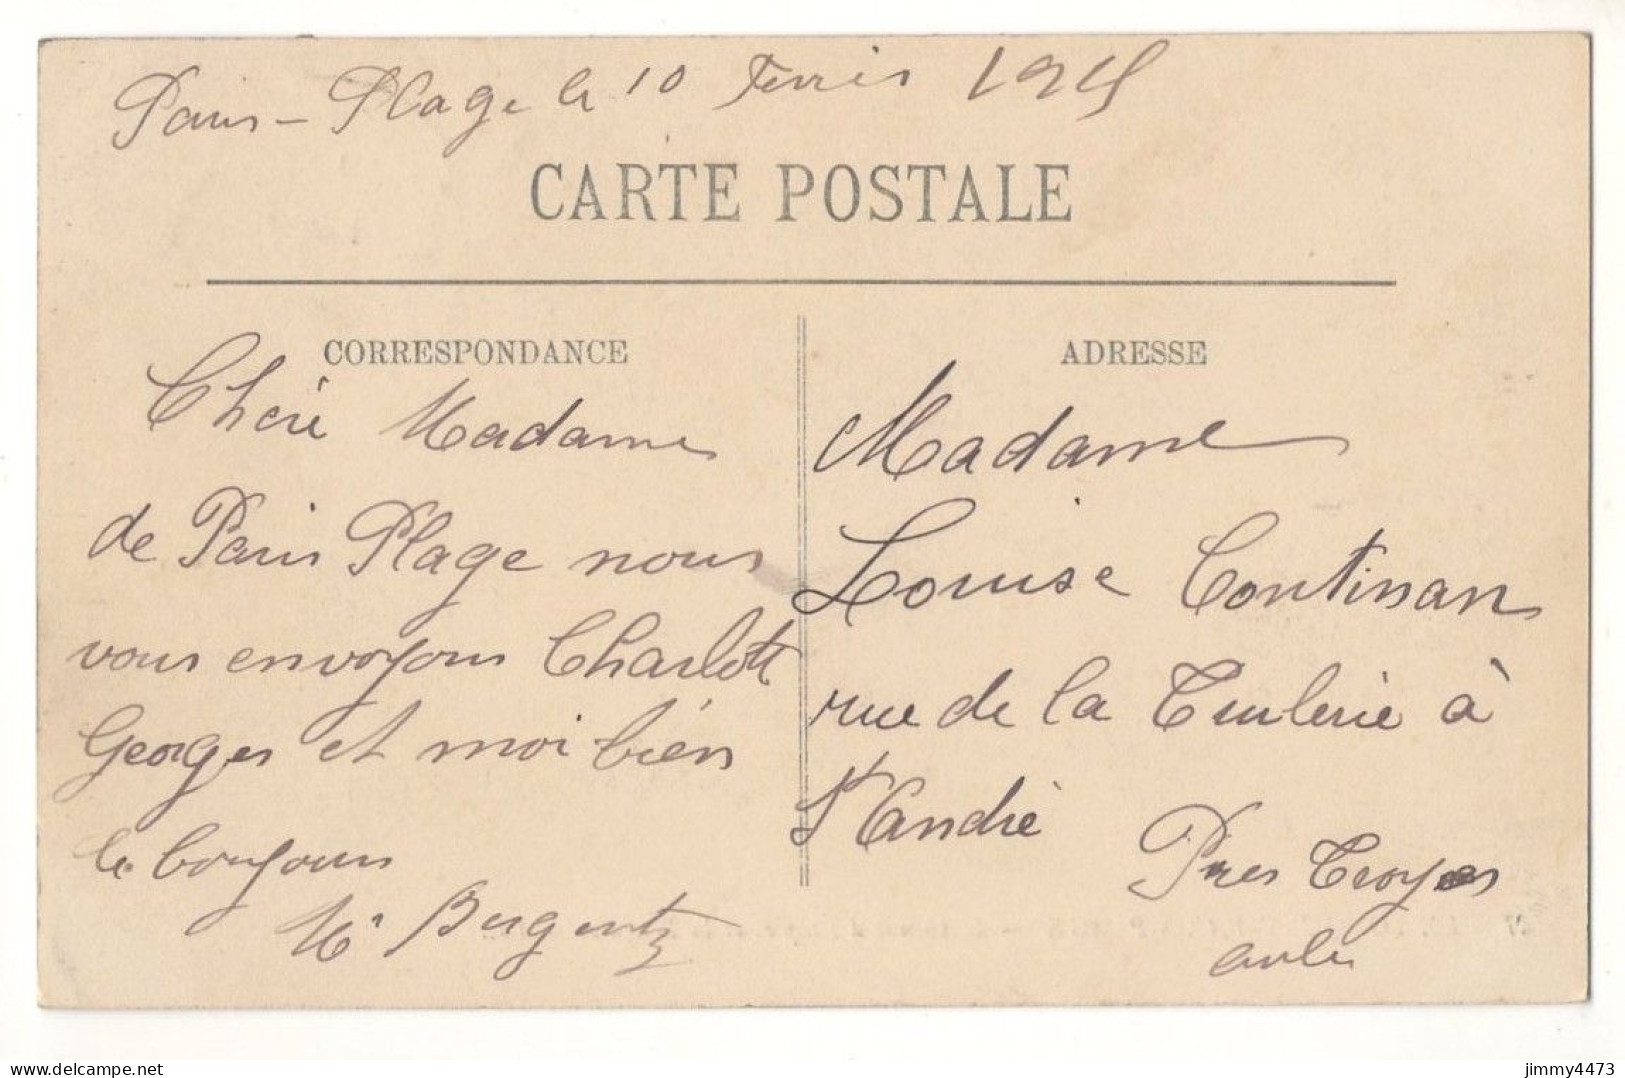 Paris-Plage le 10 Fevrier 1915
CARTE POSTALE
CORRESPONDANCE
Chère Madame
de Paris Plage nous
vous envoyons Charlotte
Georges et moi bien
le bonjour
Bergentz
ADRESSE
Madame
Louise Continan
rue de la Tuilerie à
St André
Pres Troyes
aube
delcampe.net
jimmy4473